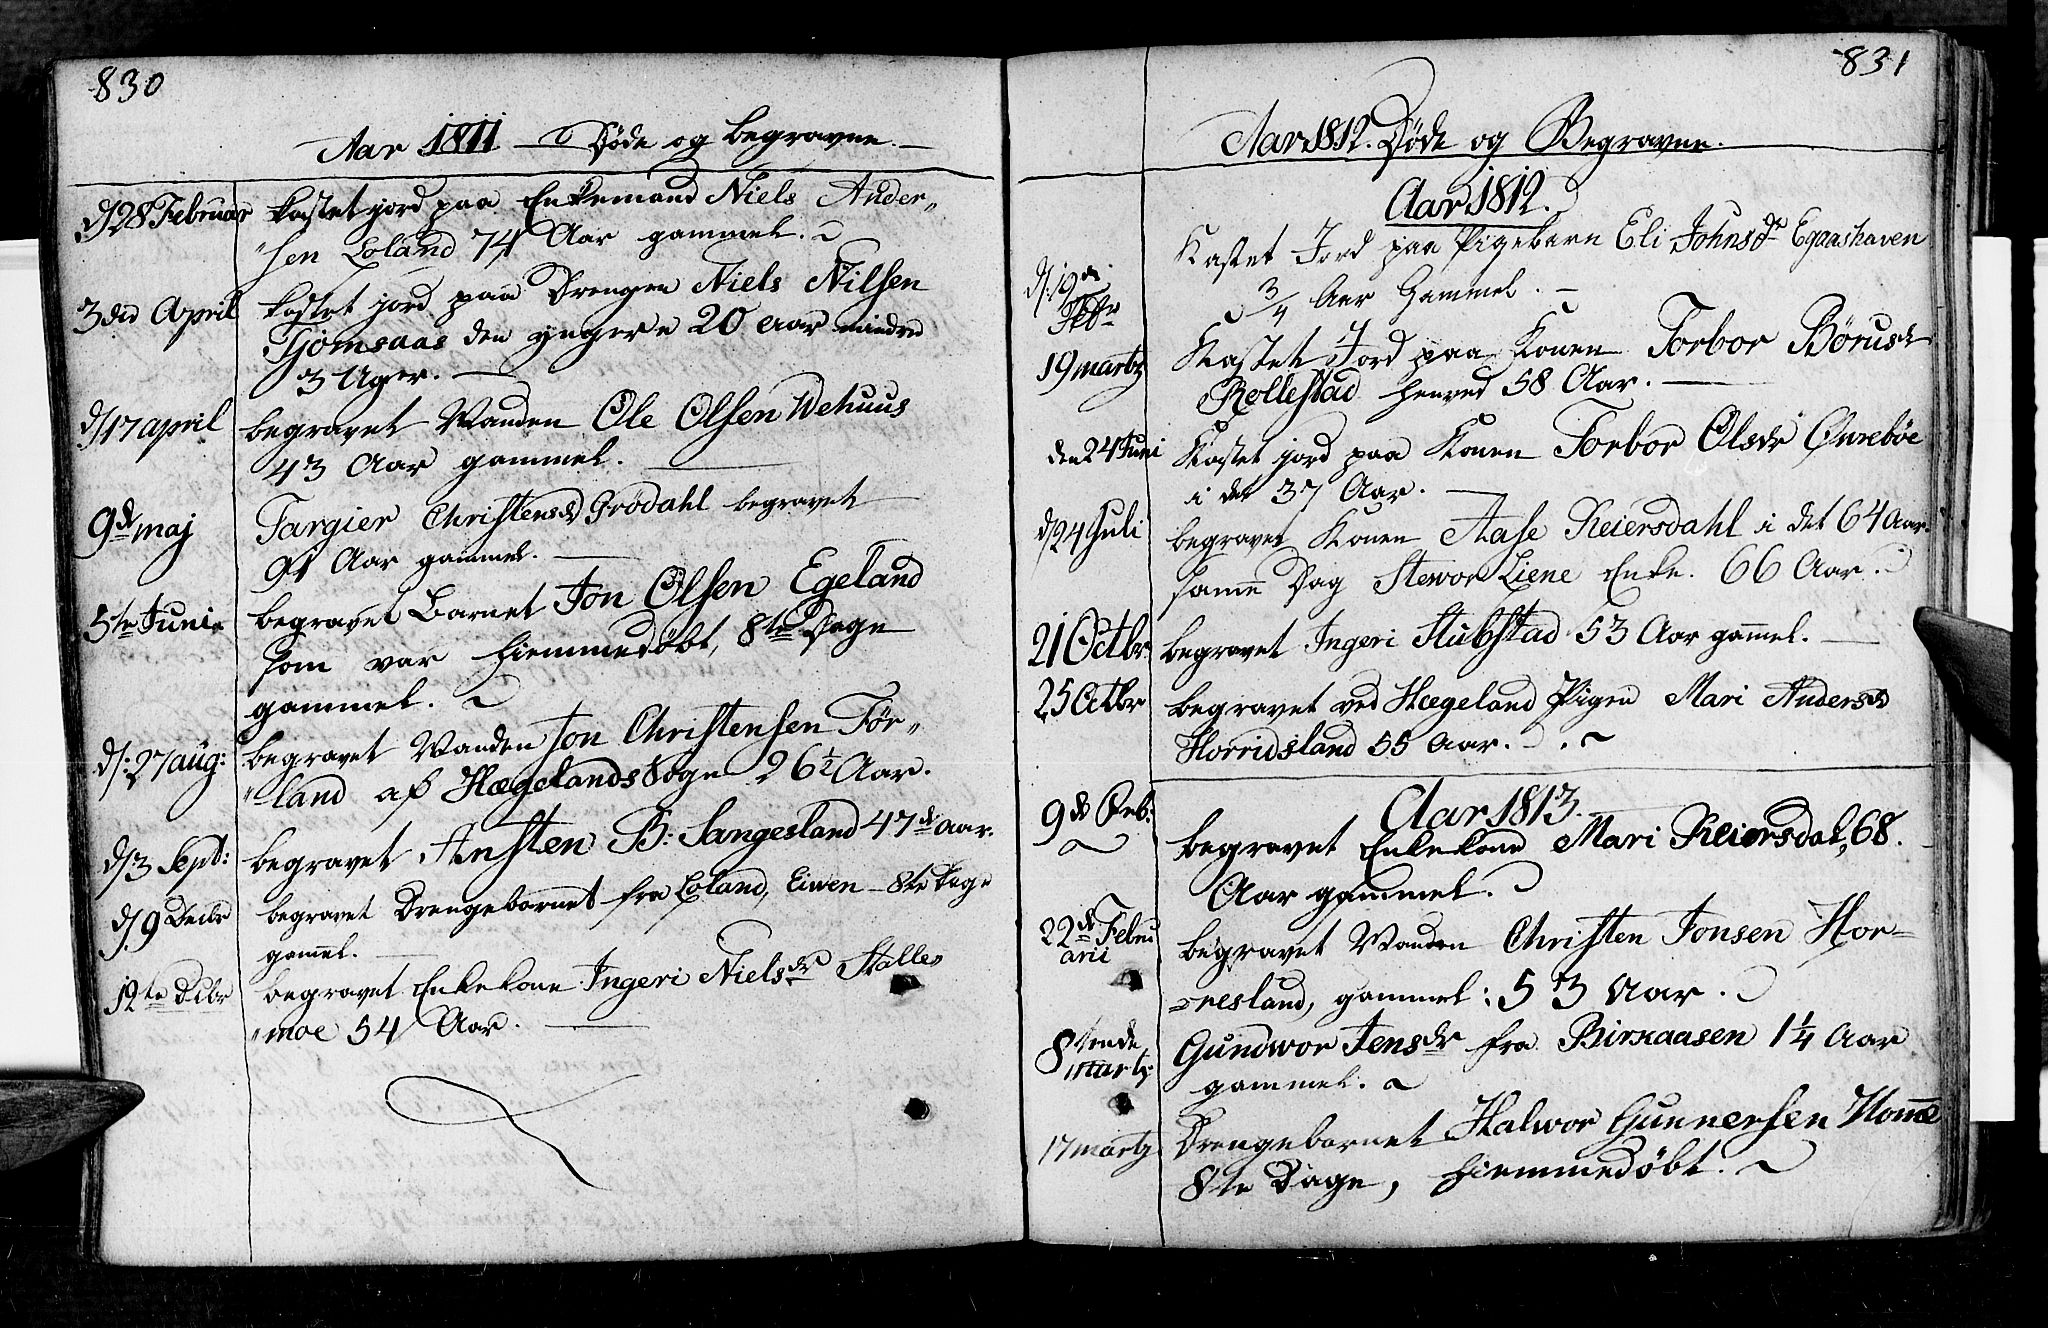 830
Aar 1811 — Døde og begravne. —
d/28 Februar kastet jord paa Enkemand Niels Ander„
„sen Loland 74 Aar gammel.
3die April kastet jord paa Drengen Niels Nilsen
Tjomsaas den yngere 20 Aar mindre
3 Uger. —
d/17 april begravet Manden Ole Olsen Wehuus
43 Aar gammel. —
9de maj Targier Christensd Grödahl begravet
91 Aar gammel. —
5te Junie begravet Barnet Jon Olsen Egeland
som var hiemmedøbt, 8te Dage
gammel.
d/: 27 aug: begravet Manden Jon Christensen För„
„land af Hægelands Sogn 26½ Aar.
d/3 Sept: begravet Ansten B: Langesland 47de Aar.
d/9 Decbr begravet Drengebarnet fra Loland, Eiwen – 8te Dage
gamel. —
12te Dcbr begravet Enkekone Ingeri Nielsdr Stalle„
„moe 54 Aar. —
831
Aar 1812. Døde og Begravne.
Aar 1812.
d/: 12 Febr Kastet Jord paa Pigebarn Eli Johnsdr Egaashaven
¾ Aar Gammel. —
19 martz Kastet Jord paa Konen Torbor Børusdr
Rollestad henved 58 Aar. —
den 24 Juni Kastet jord paa Konen Torbor Olsdr Øurebøe
i det 37 Aar. —
d/24 Juli begravet Konen Aase Keiersdahl i det 64 Aar.
same Dag Stewor Liene Enke. 66 Aar.
21 Octbr. begravet Ingeri Stubstad 53 Aar gamel. —
25 Octbr begravet ved Hægeland Pigen Mari Andersdr
Horridsland 55 Aar.
Aar 1813.
9de Feb: begravet Enkekone Mari Keiersdal, 68.
Aar gammel.
22de Febru
arii begravet Manden Christen Jonsen Hor-
resland, gammel: 53 Aar.
8tende martz Gundwor Jensdr fra Birkaasen 1¼ Aar
gammel.
17 martz Drengebarnet Halwor Gunnersen Home
8te Dage, hiemmedøbt.